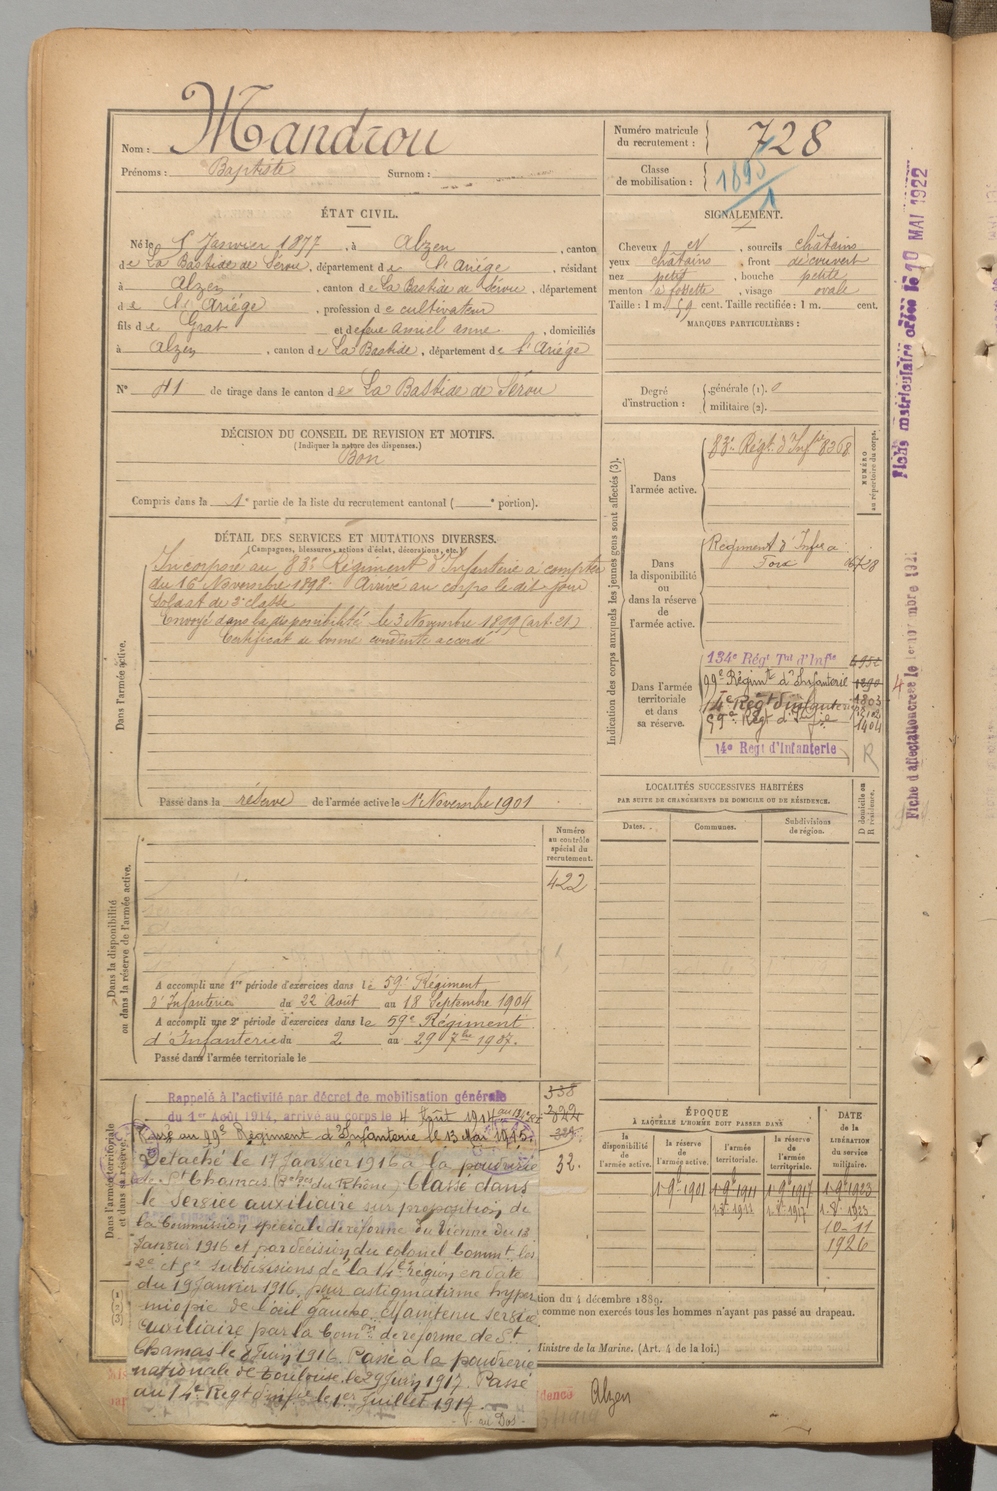 Nom : Mandrou
Prénoms : Baptiste Surnom :
Numéro matricule du recrutement : 728
Classe de mobilisation : 1895/1
ÉTAT CIVIL.
Né le 5 Janvier 1877, à Alzen, canton
de La Bastide de Sérou, département de l'Ariége, résidant
à Alzen, canton de La Bastide de Sérou, département
de l'Ariége, profession de cultivateur
fils de Grat et de feue Anniel anne, domiciliés
à Alzen, canton de La Bastide, département de l'Ariége
N° 41 de tirage dans le canton de La Bastide de Sérou
SIGNALEMENT.
Cheveux N, sourcils châtains
yeux châtains, front découvert
nez petit, bouche petite
menton à fossette, visage ovale
Taille : 1 m. 59 cent. Taille rectifiée : 1 m. cent.
MARQUES PARTICULIÈRES :
Degré d'instruction : générale (1). 0
militaire (2).
DÉCISION DU CONSEIL DE REVISION ET MOTIFS.
(Indiquer la nature des dispenses.)
Bon
Compris dans la 1e partie de la liste du recrutement cantonal ( e portion).
DÉTAIL DES SERVICES ET MUTATIONS DIVERSES.
(Campagnes, blessures, actions d'éclat, décorations, etc.)
Dans l'armée active.
Incorporé au 83e Régiment d'Infanterie à compter
du 16 Novembre 1898. Arrivé au corps le dit jour
Soldat de 2e classe
Envoyé dans la disponibilité le 3 Novembre 1899 (art. 21.)
Certificat de bonne conduite accordé
Passé dans la réserve de l'armée active le 1er Novembre 1901
Indication des corps auxquels les jeunes gens sont affectés (3).
NUMÉRO au répertoire du corps.
Dans l'armée active.
83e Régt d'Infie 8368
Dans la disponibilité ou dans la réserve de l'armée active.
Régiment d'Infie à
Foix
Dans l'armée territoriale et dans sa réserve.
134e Régt Tal d'Infie
99e Régimt d'Infanterie
14e Régt d'infanterie
59e Régt d'Infie 1404
14e Regt d'Infanterie R
LOCALITÉS SUCCESSIVES HABITÉES
PAR SUITE DE CHANGEMENTS DE DOMICILE OU DE RÉSIDENCE.
Dates. Communes. Subdivisions de région. D domicile ou R résidence.
Dans la disponibilité ou dans la réserve de l'armée active.
Numéro au contrôle spécial du recrutement.
422
A accompli une 1re période d'exercices dans le 59e Régiment
d'Infanterie du 22 Août au 18 Septembre 1904
A accompli une 2e période d'exercices dans le 59e Régiment
d'Infanterie du 2 au 29 7bre 1907.
Passé dans l'armée territoriale le
Dans l'armée territoriale et dans sa réserve.
338
322
32.
Rappelé à l'activité par décret de mobilisation générale
du 1er Août 1914, arrivé au corps le 4 Août 1914
Passé au 99e Régiment d'Infanterie le 13 Mai 1915.
Détaché le 17 Janvier 1916 à la poudrerie
de St Chamas (Bches du Rhône) Classé dans
le Service auxiliaire sur proposition de
la Commission spéciale de réforme de Vienne du 18
Janvier 1916 et par décision du Colonel Commt les
2e et 5e subdivisions de la 14e Région en date
du 19 Janvier 1916, pour astigmatisme hyper
miopie de l'œil gauche. Maintenu service
auxiliaire par la Comon de réforme de St
Chamas le 8 Juin 1916. Passé à la poudrerie
nationale de Toulouse le 29 Juin 1917. Passé
au 14e Régt d'infie le 1er Juillet 1917.
V. au Dos
ÉPOQUE
À LAQUELLE L'HOMME DOIT PASSER DANS
la disponibilité de l'armée active. la réserve de l'armée active. l'armée territoriale. la réserve de l'armée territoriale.
DATE de la LIBÉRATION du service militaire.
1-9e 1901 1-9e 1911 1-9e 1917 1-9e 1923
1-8e 1911 1-8e 1917 1-8e 1923
10-11
1926
tion du 4 décembre 1889.
comme non exercés tous les hommes n'ayant pas passé au drapeau.
Ministre de la Marine. (Art. 4 de la loi.)
dence Alzen
Fiche matriculaire créée le 10 MAI 1922
Fiche d'affectation créée le 1er novembre 1921